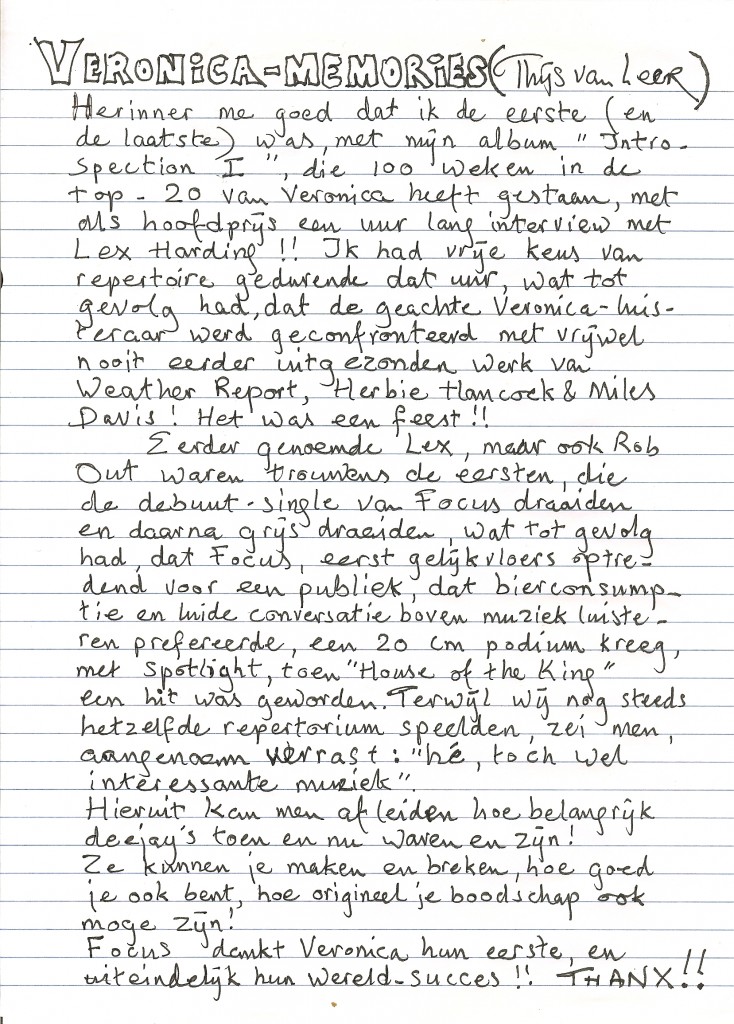 VERONICA-MEMORIES (Thijs van Leer)
Herinner me goed dat ik de eerste (en
de laatste) was, met mijn album "Intro-
spection I", die 100 weken in de
top-20 van Veronica heeft gestaan, met
als hoofdprijs een uur lang interview met
Lex Harding!! Ik had vrije keus van
repertoire gedurende dat uur, wat tot
gevolg had, dat de geachte Veronica-luis-
teraar werd geconfronteerd met vrijwel
nooit eerder uitgezonden werk van
Weather Report, Herbie Hancock & Miles
Davis! Het was een feest!!
Eerder genoemde Lex, maar ook Rob
Out waren trouwens de eersten, die
de debuut-single van Focus draaiden
en daarna grijs draaiden, wat tot gevolg
had, dat Focus, eerst gelijkvloers optre-
dend voor een publiek, dat bierconsump-
tie en luide conversatie boven muziek luiste-
ren prefereerde, een 20 cm podium kreeg,
met spotlight, toen "House of the King"
een hit was geworden. Terwijl wij nog steeds
hetzelfde repertorium speelden, zei men,
aangenaam verrast: "hé, toch wel
interessante muziek".
Hieruit kan men afleiden hoe belangrijk
deejay's toen en nu waren en zijn!
Ze kunnen je maken en breken, hoe goed
je ook bent, hoe origineel je boodschap ook
moge zijn!
Focus dankt Veronica hun eerste, en
uiteindelijk hun wereld-succes!! THANX!!